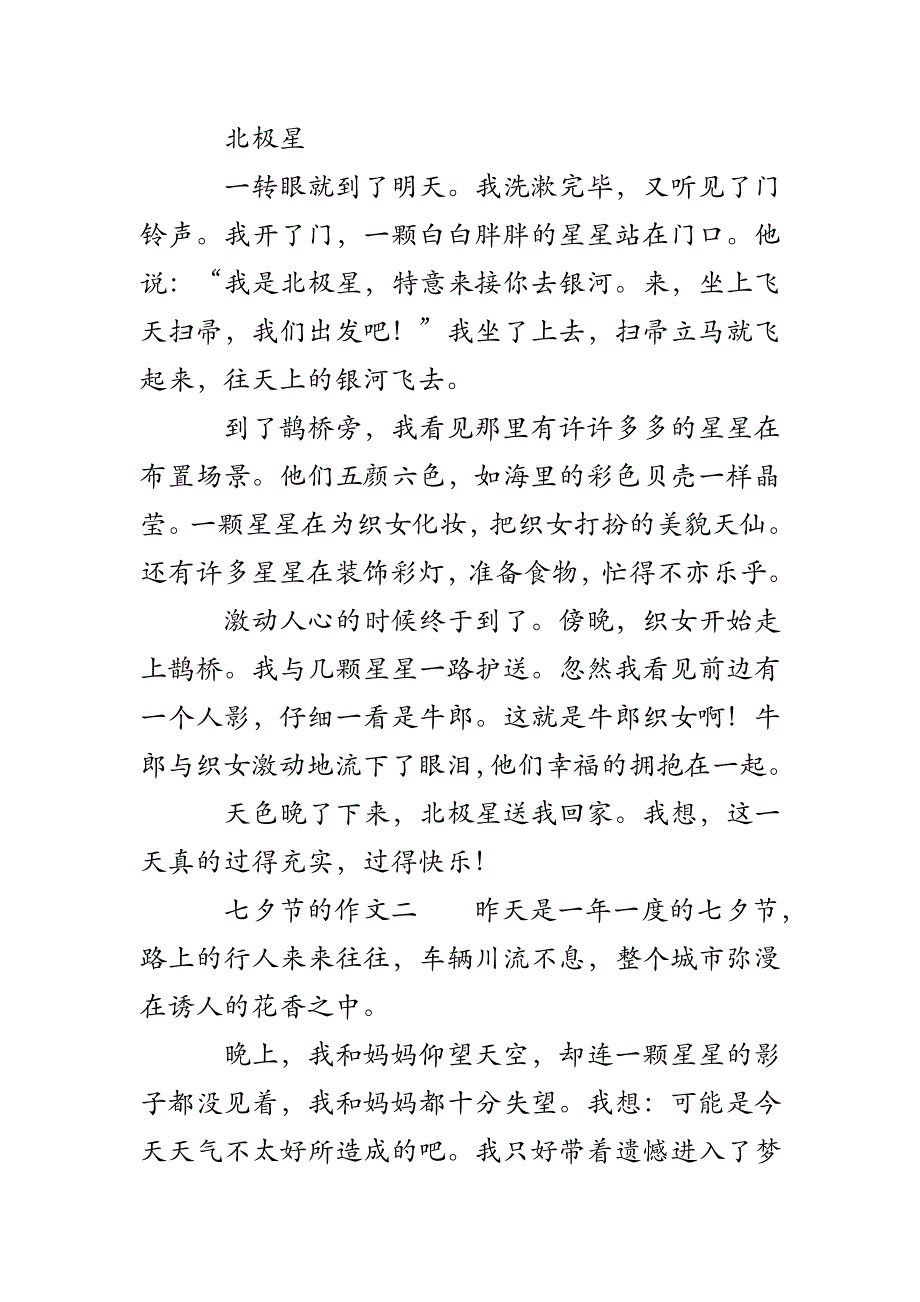 北极星
一转眼就到了明天。我洗漱完毕，又听见了门
铃声。我开了门，一颗白白胖胖的星星站在门口。他
说：“我是北极星，特意来接你去银河。来，坐上飞
天扫帚，我们出发吧！”我坐了上去，扫帚立马就飞
起来，往天上的银河飞去。
到了鹊桥旁，我看见那里有许许多多的星星在
布置场景。他们五颜六色，如海里的彩色贝壳一样晶
莹。一颗星星在为织女化妆，把织女打扮的美貌天仙。
还有许多星星在装饰彩灯，准备食物，忙得不亦乐乎。
激动人心的时候终于到了。傍晚，织女开始走
上鹊桥。我与几颗星星一路护送。忽然我看见前边有
一个人影，仔细一看是牛郎。这就是牛郎织女啊！牛
郎与织女激动地流下了眼泪，他们幸福的拥抱在一起。
天色晚了下来，北极星送我回家。我想，这一
天真的过得充实，过得快乐！
七夕节的作文二　　昨天是一年一度的七夕节，
路上的行人来来往往，车辆川流不息，整个城市弥漫
在诱人的花香之中。
晚上，我和妈妈仰望天空，却连一颗星星的影
子都没见着，我和妈妈都十分失望。我想：可能是今
天天气不太好所造成的吧。我只好带着遗憾进入了梦